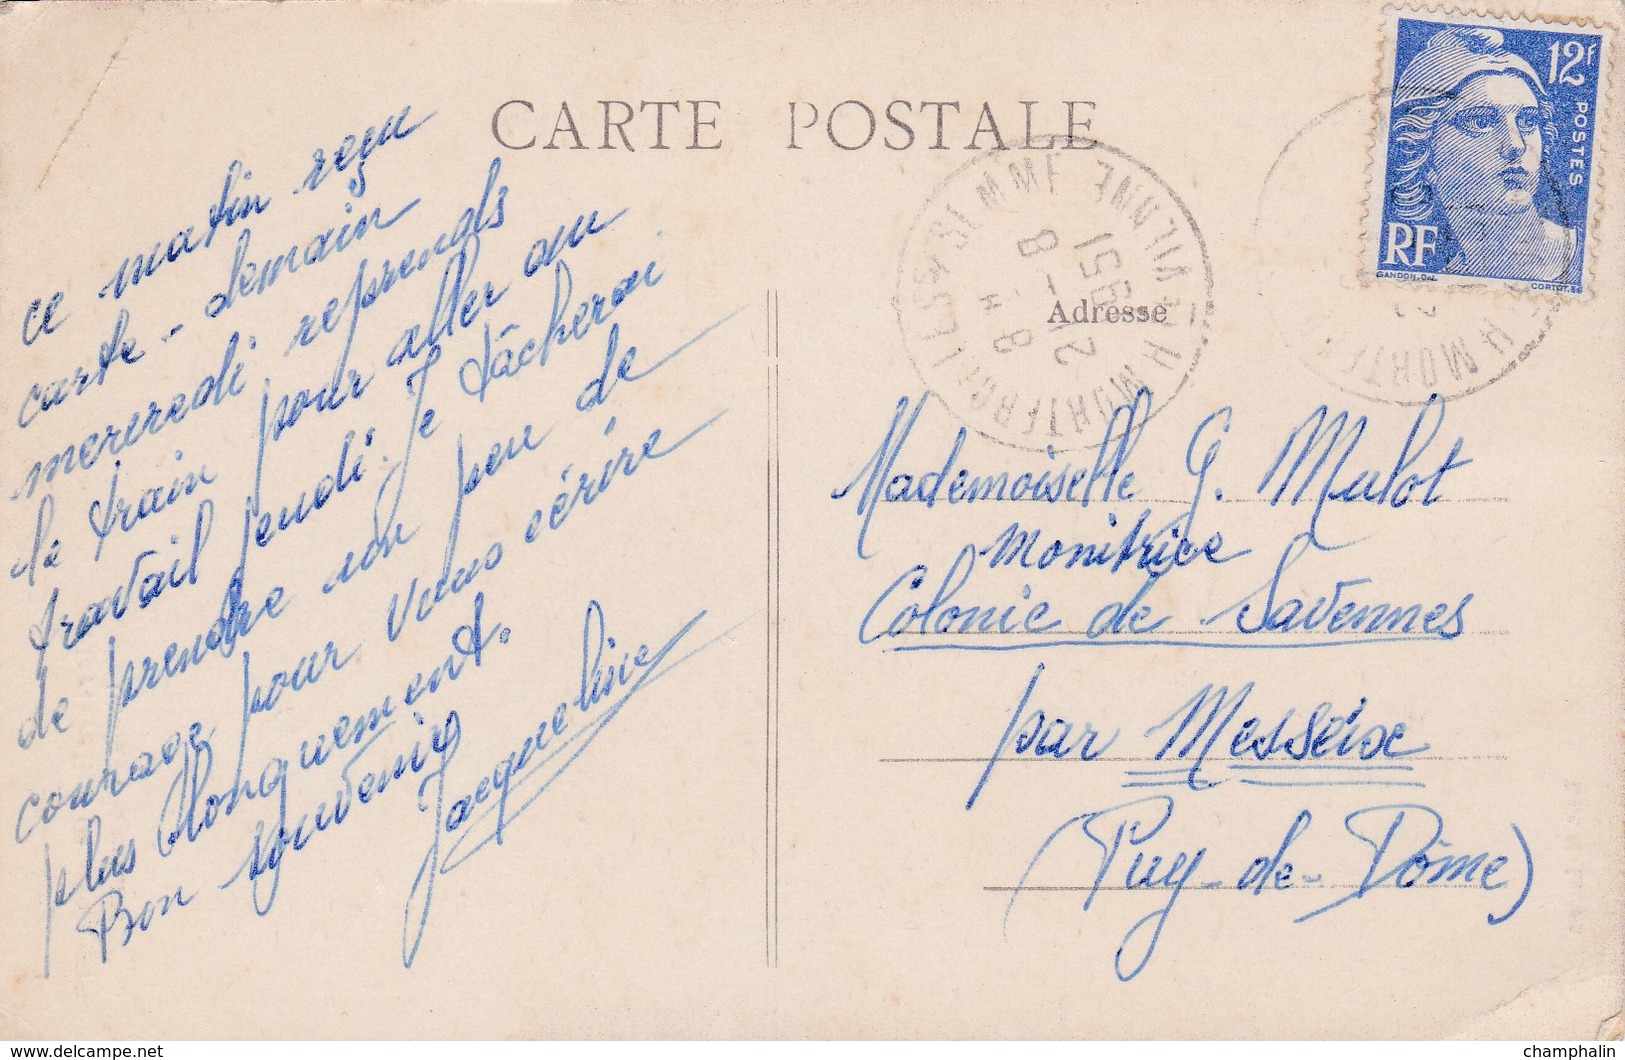 CARTE POSTALE
ce matin reçu
carte - demain
mercredi reprends
le train pour aller au
travail jeudi. Je tâcherai
de prendre un peu de
courage pour vous écrire
plus longuement.
Bon souvenir
Jacqueline
12F
POSTES
RF
GANDON. DEL.
CORTOT. SC
Adresse
Mademoiselle G. Mulot
monitrice
Colonie de Savennes
par Messeix
(Puy-de-Dôme)
delcampe.net
champhalin